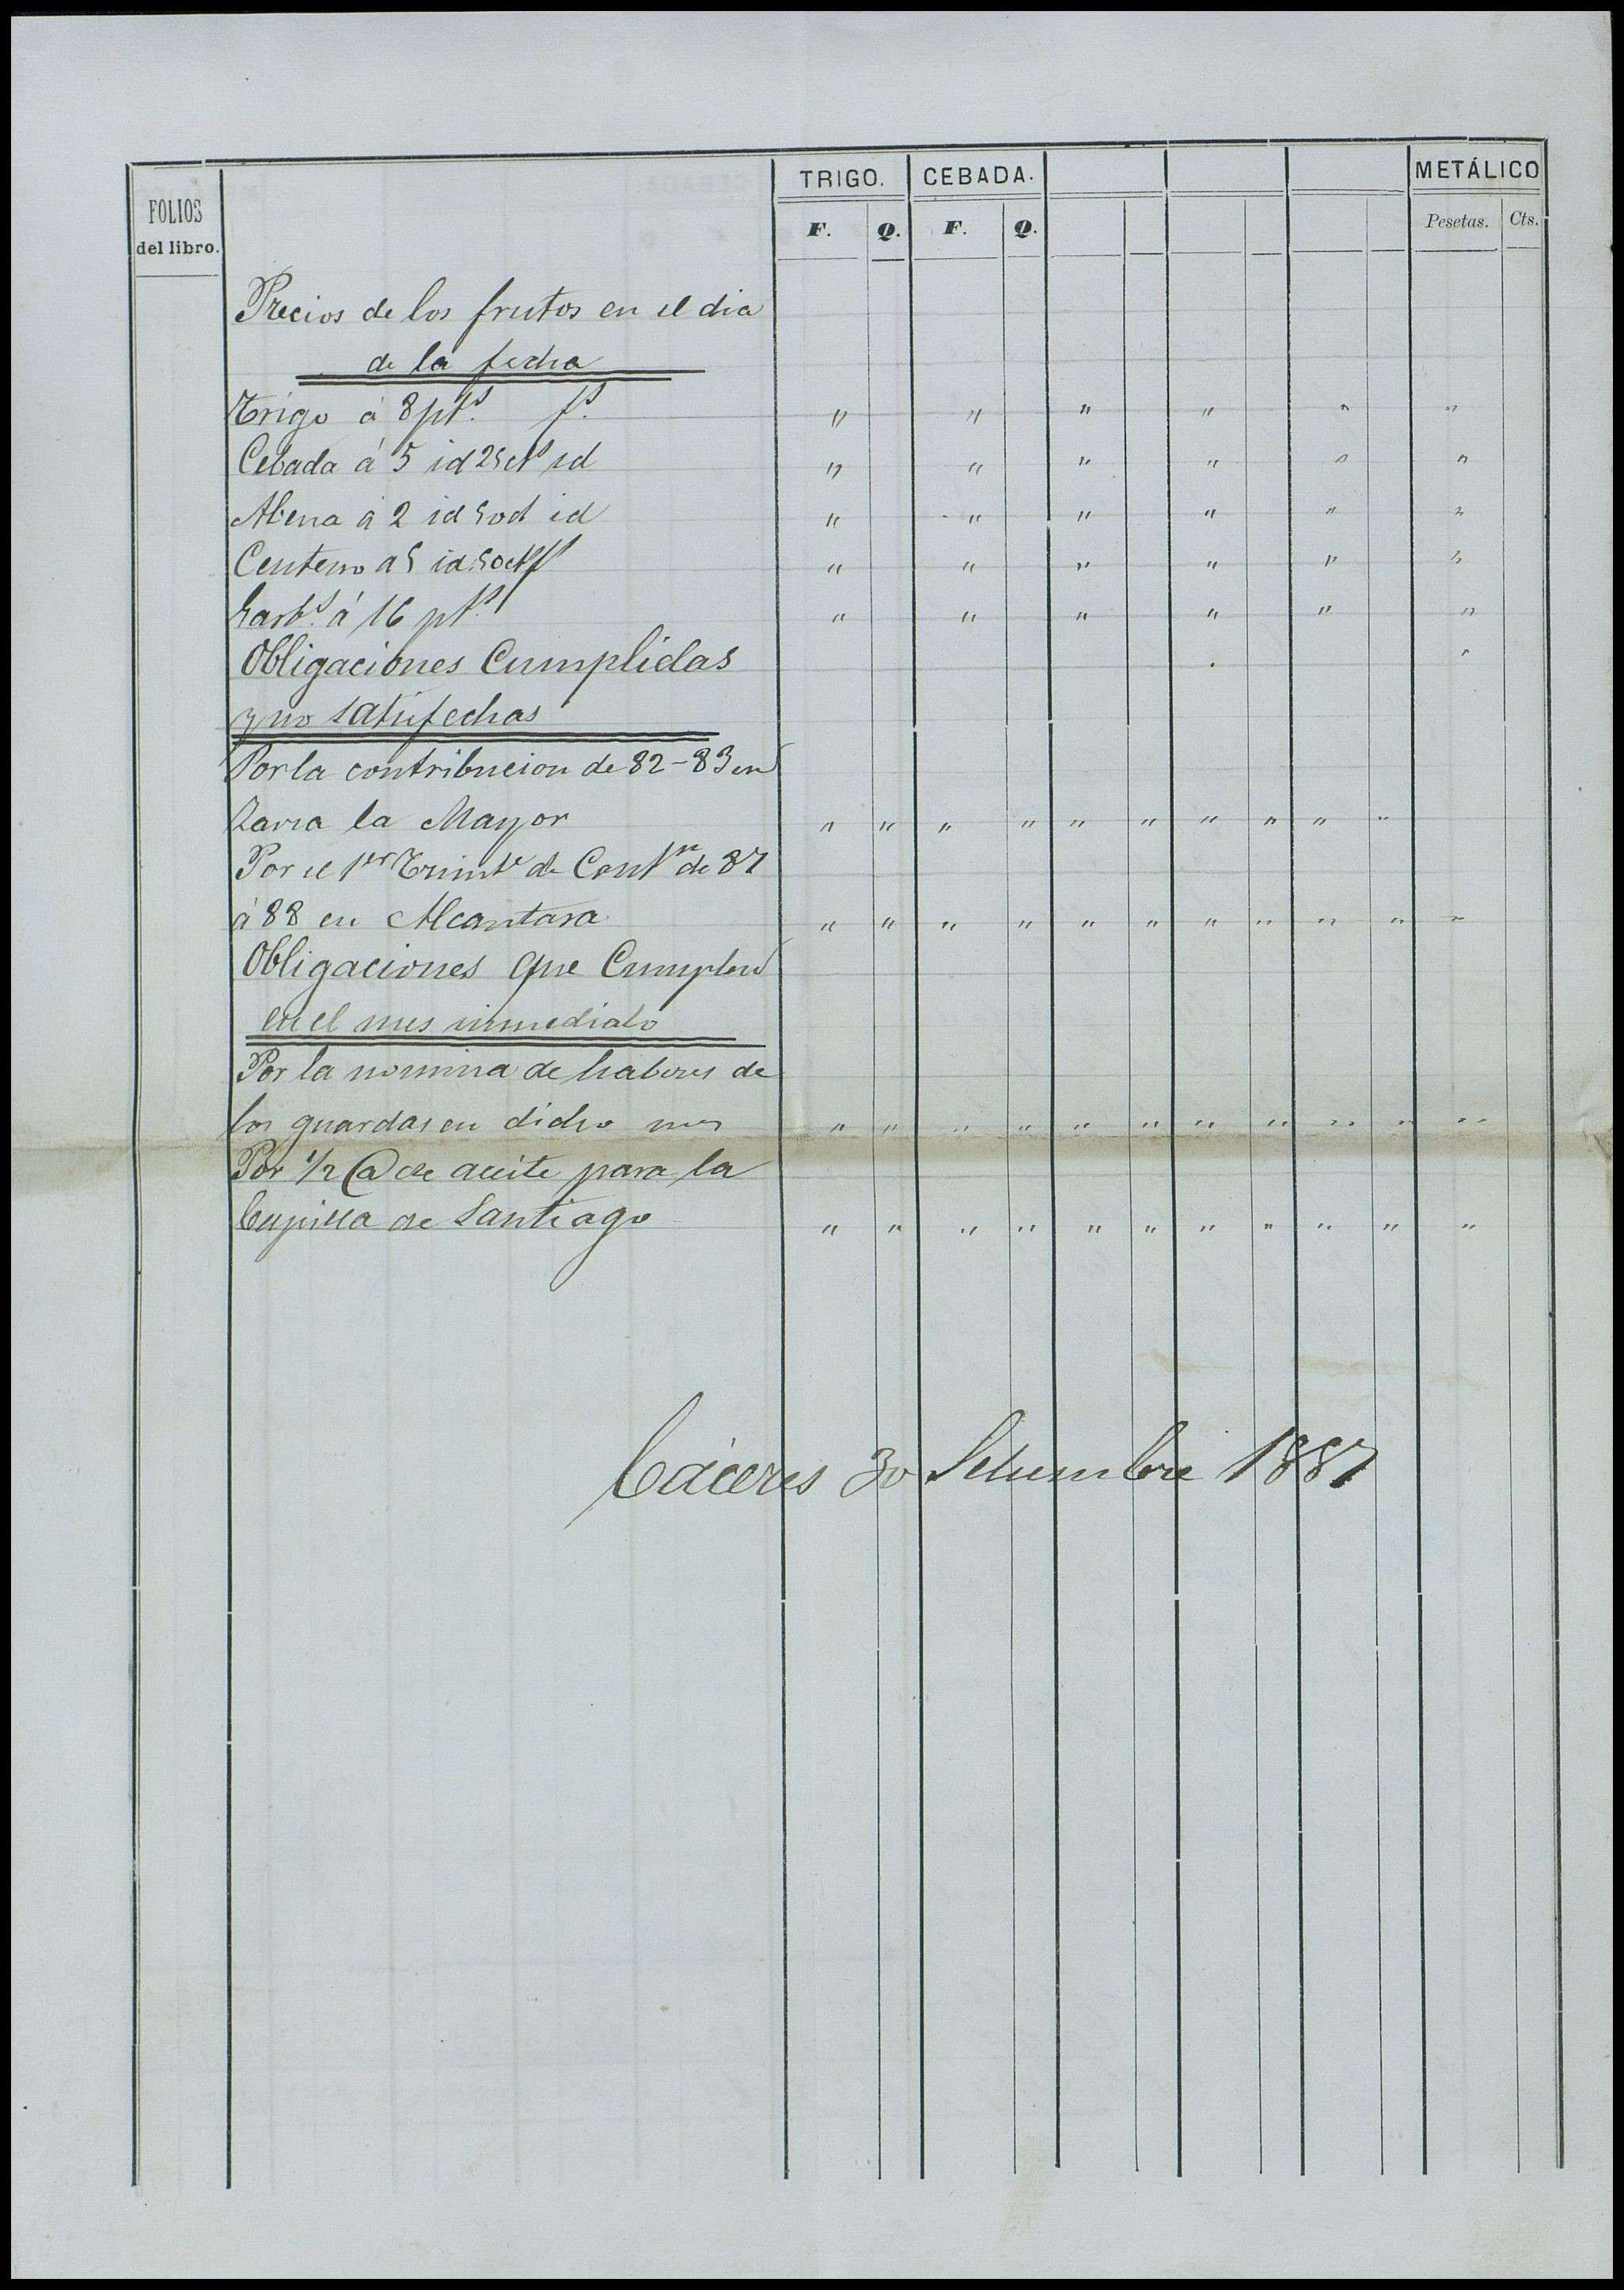 FOLIOS
del libro.
TRIGO. CEBADA. METÁLICO
F. Q. F. Q. Pesetas. Cts.
Precios de los frutos en el dia
de la fecha
Trigo á 8 pts. fs. " " " " " "
Cebada á 5 id 25 cts id " " " " " "
Abena á 2 id 50 ct id " " " " " "
Centeno a 5 id 50 cts fs " " " " " "
Garbs. á 16 pts. " " " " " "
Obligaciones Cumplidas
y no satisfechas
Por la contribucion de 82-83 en
Zarza la Mayor " " " " " " " " " "
Por el 1er Trimte de Contn de 87
á 88 en Alcantara " " " " " " " " " " "
Obligaciones que Cumplen
en el mes inmediato
Por la nomina de haberes de
los guardas en dicho mes " " " " " " " " " " "
Por 1/2 @ de aceite para la
Capilla de Santiago " " " " " " " " " " "
Cáceres 30 Setiembre 1887